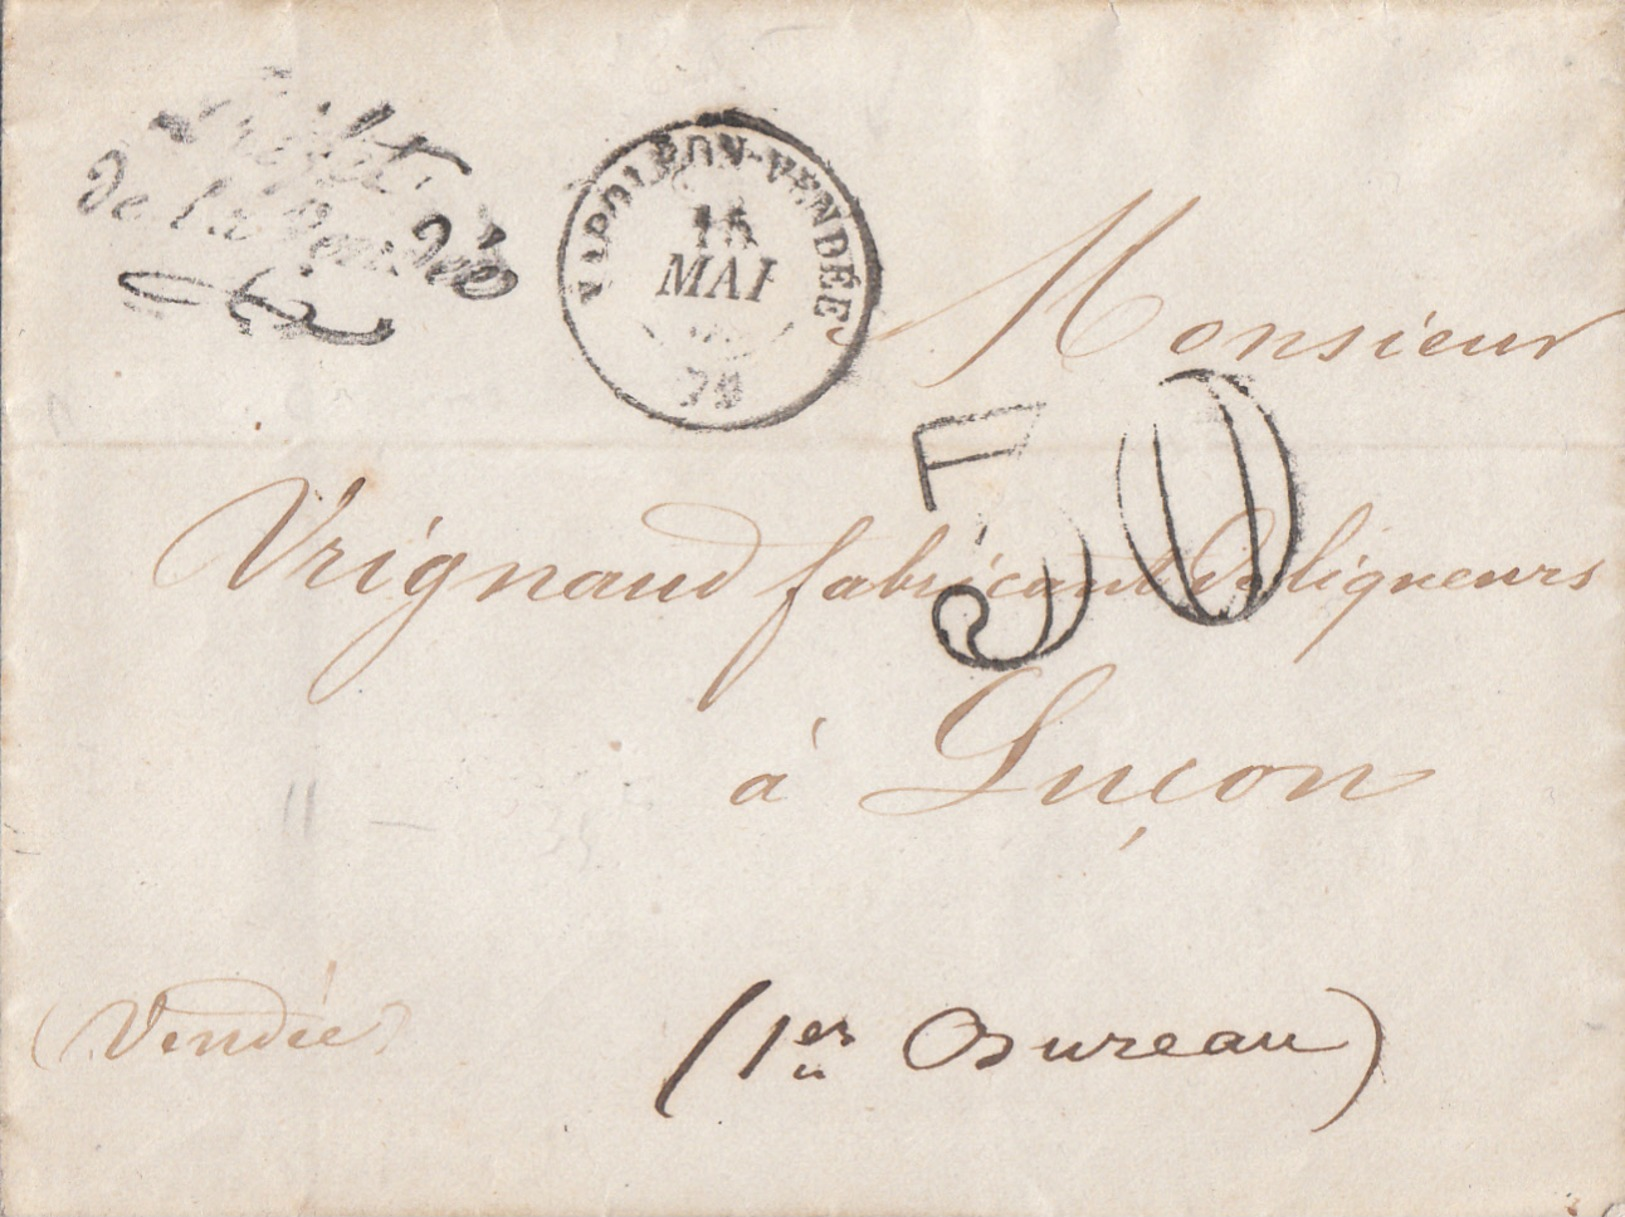 Préfet
de la Vendée
NAPOLÉON-VENDÉE
16
MAI
78
Monsieur
50
Vrignaud fabricant de liqueurs
à Luçon
(Vendée)
(1er Bureau)